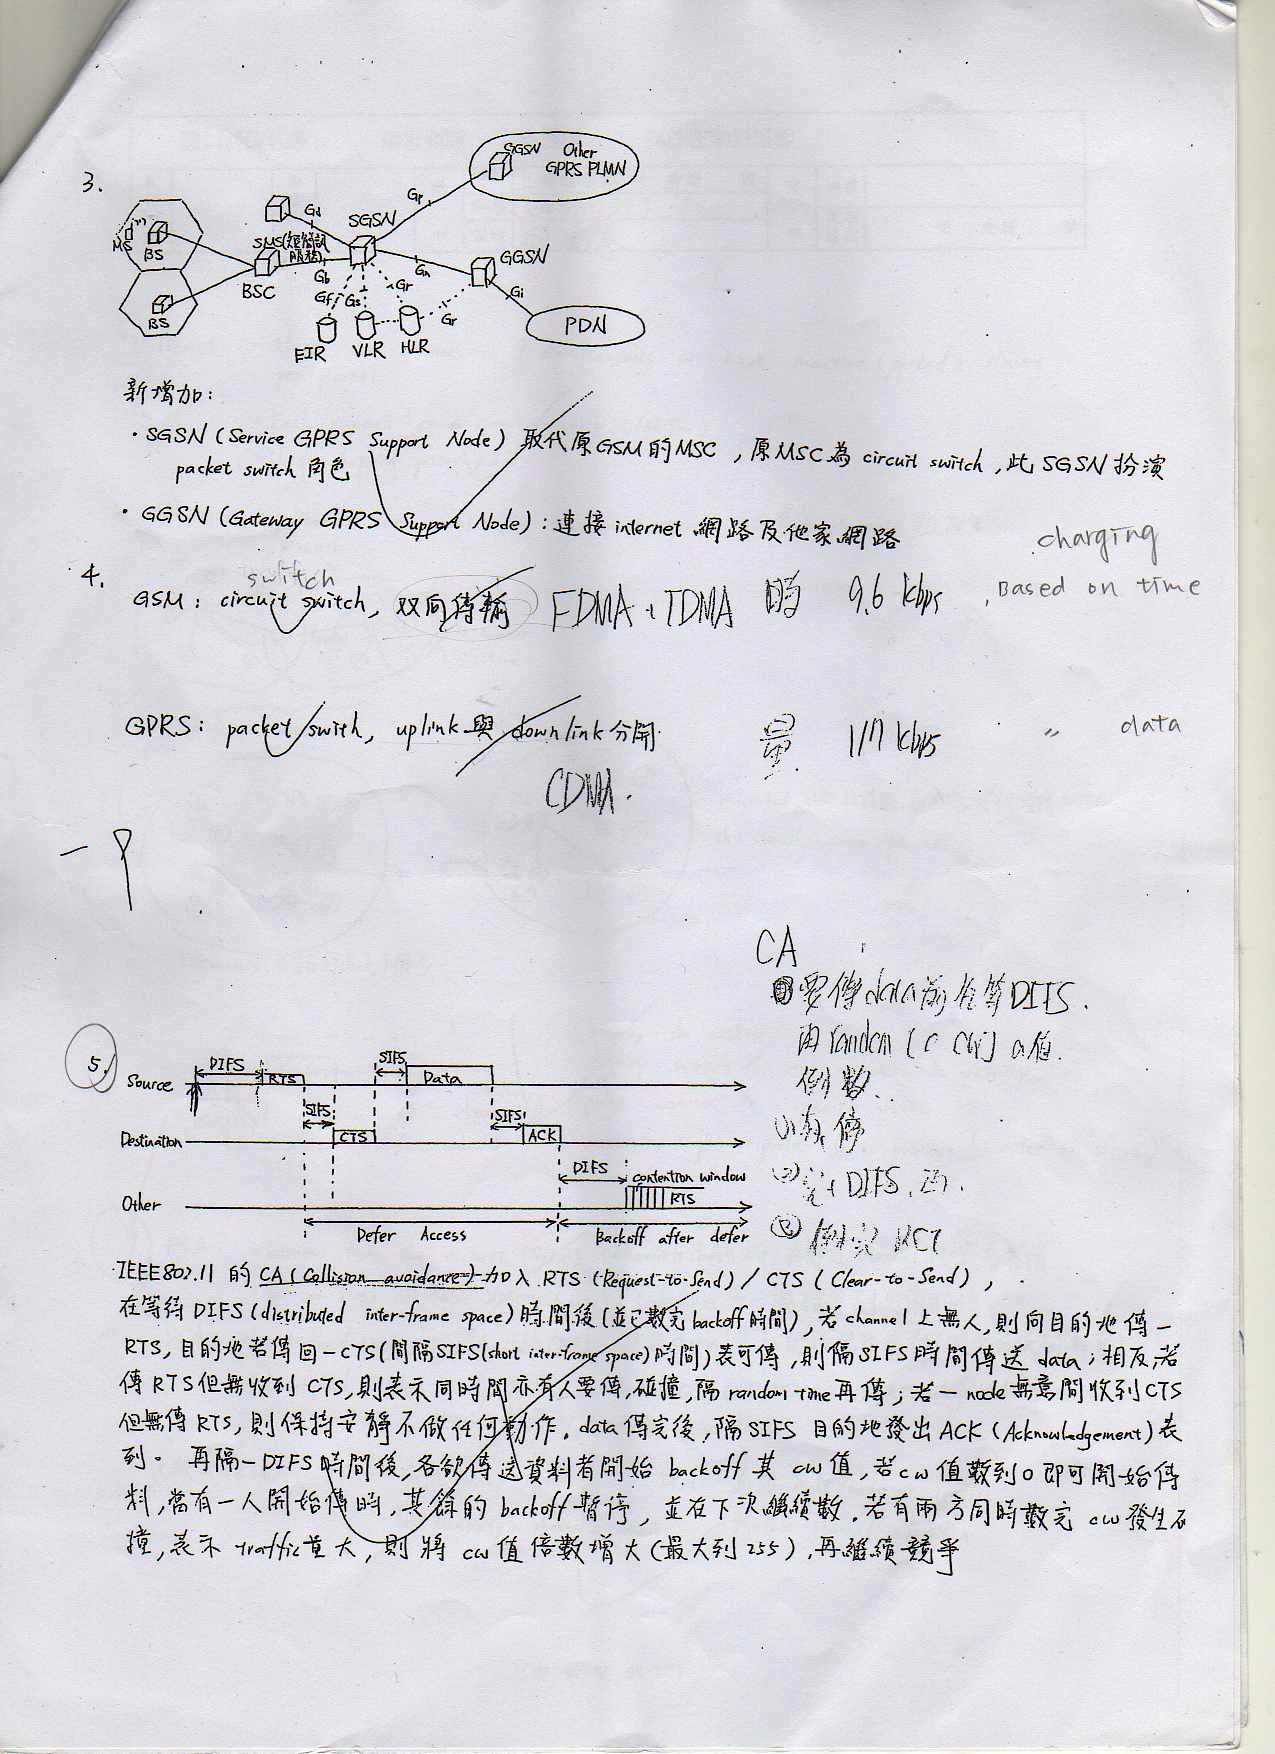 3.
SGSN Other
GPRS PLMN
Gp
Gd SGSN
MS BS
SMS(短簡訊
服務)
Gb Gn GGSN
BSC Gf Gs Gr Gi
BS Gr
EIR VLR HLR PDN
新增加:
·SGSN (Service GPRS Support Node) 取代原GSM的MSC,原MSC為 circuit switch,此 SGSN扮演
packet switch 角色
·GGSN (Gateway GPRS Support Node):連接 internet 網路及他家網路
charging
4.
switch
GSM: circuit switch, 双向傳輸 FDMA + TDMA 時 9.6 kbps , Based on time
GPRS: packet swith, uplink與downlink分開 量 117 kbps 〃 data
CDMA.
CA
要傳data前先等DIFS.
用random
值
倒數.
5.
DIFS SIFS
Source RTS Data
SIFS SIFS
Destination CTS ACK
DIFS contention window
Other RTS
Defer Access Backoff after defer
DIFS
(2)
·IEEE802.11 的 CA (Collision avoidance) 加入 RTS (Request-to-Send) / CTS (Clear-to-Send),
在等待 DIFS (distributed inter-frame space) 時間後(並已數完backoff時間),若channel上無人,則向目的地傳一
RTS,目的地若傳回一CTS(間隔SIFS(short inter-frame space)時間)表可傳,則隔SIFS時間傳送 data;相反,若
傳RTS但無收到 CTS,則表示同時間亦有人要傳,碰撞,隔 random time再傳;若一 node無意間收到CTS
但無傳RTS,則保持安靜不做任何動作. data傳完後,隔 SIFS 目的地發出ACK (Acknowledgement)表
到。 再隔一DIFS時間後,各欲傳送資料者開始 backoff 其 cw 值,若cw值數到0即可開始傳
料,當有一人開始傳時,其餘的 backoff 暫停, 並在下次繼續數.若有兩方同時數完 cw 發生
撞,表示 traffic量大,則將 cw 值倍數增大(最大到255),再繼續競爭